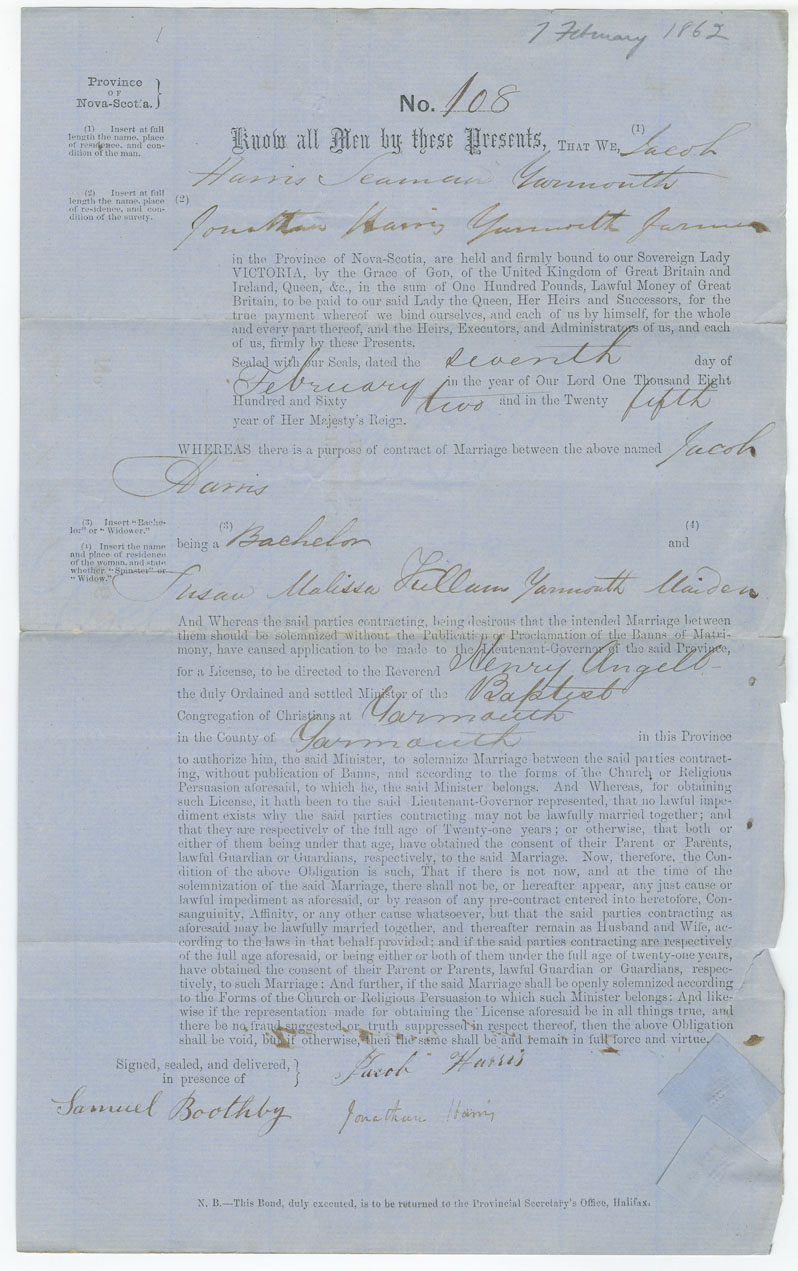 7 February 1862
Province
OF
Nova-Scotia.
No. 108
(1) Insert at full
length the name, place
of residence, and con-
dition of the man.
Know all Men by these Presents, THAT WE, (1) Jacob
Harris Seaman Yarmouth
(2) Insert at full
length the name, place
of residence, and con-
dition of the surety.
(2)
Jonathan Harris Yarmouth Farmer
in the Province of Nova-Scotia, are held and firmly bound to our Sovereign Lady
VICTORIA, by the Grace of GOD, of the United Kingdom of Great Britain and
Ireland, Queen, &c., in the sum of One Hundred Pounds, Lawful Money of Great
Britain, to be paid to our said Lady the Queen, Her Heirs and Successors, for the
true payment whereof we bind ourselves, and each of us by himself, for the whole
and every part thereof, and the Heirs, Executors, and Administrators of us, and each
of us, firmly by these Presents.
Sealed with our Seals, dated the seventh day of
February in the year of Our Lord One Thousand Eight
Hundred and Sixty two and in the Twenty fifth
year of Her Majesty's Reign.
WHEREAS there is a purpose of contract of Marriage between the above named Jacob
Harris
(3) Insert "Bache-
lor" or "Widower."
(3) (4)
being a Bachelor and
(4) Insert the name
and place of residence
of the woman, and state
whether "Spinster" or
"Widow."
Susan Malissa Killam Yarmouth Maiden
And Whereas the said parties contracting, being desirous that the intended Marriage between
them should be solemnized without the Publication or Proclamation of the Banns of Matri-
mony, have caused application to be made to the Lieutenant-Governor of the said Province,
for a License, to be directed to the Reverend Henry Angell
the duly Ordained and settled Minister of the Baptist
Congregation of Christians at Yarmouth
in the County of Yarmouth in this Province
to authorize him, the said Minister, to solemnize Marriage between the said parties contract-
ing, without publication of Banns, and according to the forms of the Church or Religious
Persuasion aforesaid, to which he, the said Minister belongs. And Whereas, for obtaining
such License, it hath been to the said Lieutenant-Governor represented, that no lawful impe-
diment exists why the said parties contracting may not be lawfully married together; and
that they are respectively of the full age of Twenty-one years; or otherwise, that both or
either of them being under that age, have obtained the consent of their Parent or Parents,
lawful Guardian or Guardians, respectively, to the said Marriage. Now, therefore, the Con-
dition of the above Obligation is such, That if there is not now, and at the time of the
solemnization of the said Marriage, there shall not be, or hereafter appear, any just cause or
lawful impediment as aforesaid, or by reason of any pre-contract entered into heretofore, Con-
sanguinity, Affinity, or any other cause whatsoever, but that the said parties contracting as
aforesaid may be lawfully married together, and thereafter remain as Husband and Wife, ac-
cording to the laws in that behalf provided; and if the said parties contracting are respectively
of the full age aforesaid, or being either or both of them under the full age of twenty-one years,
have obtained the consent of their Parent or Parents, lawful Guardian or Guardians, respec-
tively, to such Marriage: And further, if the said Marriage shall be openly solemnized according
to the Forms of the Church or Religious Persuasion to which such Minister belongs: And like-
wise if the representation made for obtaining the License aforesaid be in all things true, and
there be no fraud suggested or truth suppressed in respect thereof, then the above Obligation
shall be void, but if otherwise, then the same shall be and remain in full force and virtue.
Signed, sealed, and delivered,
in presence of
Jacob Harris
Samuel Boothby Jonathan Harris
N. B.—This Bond, duly executed, is to be returned to the Provincial Secretary's Office, Halifax.